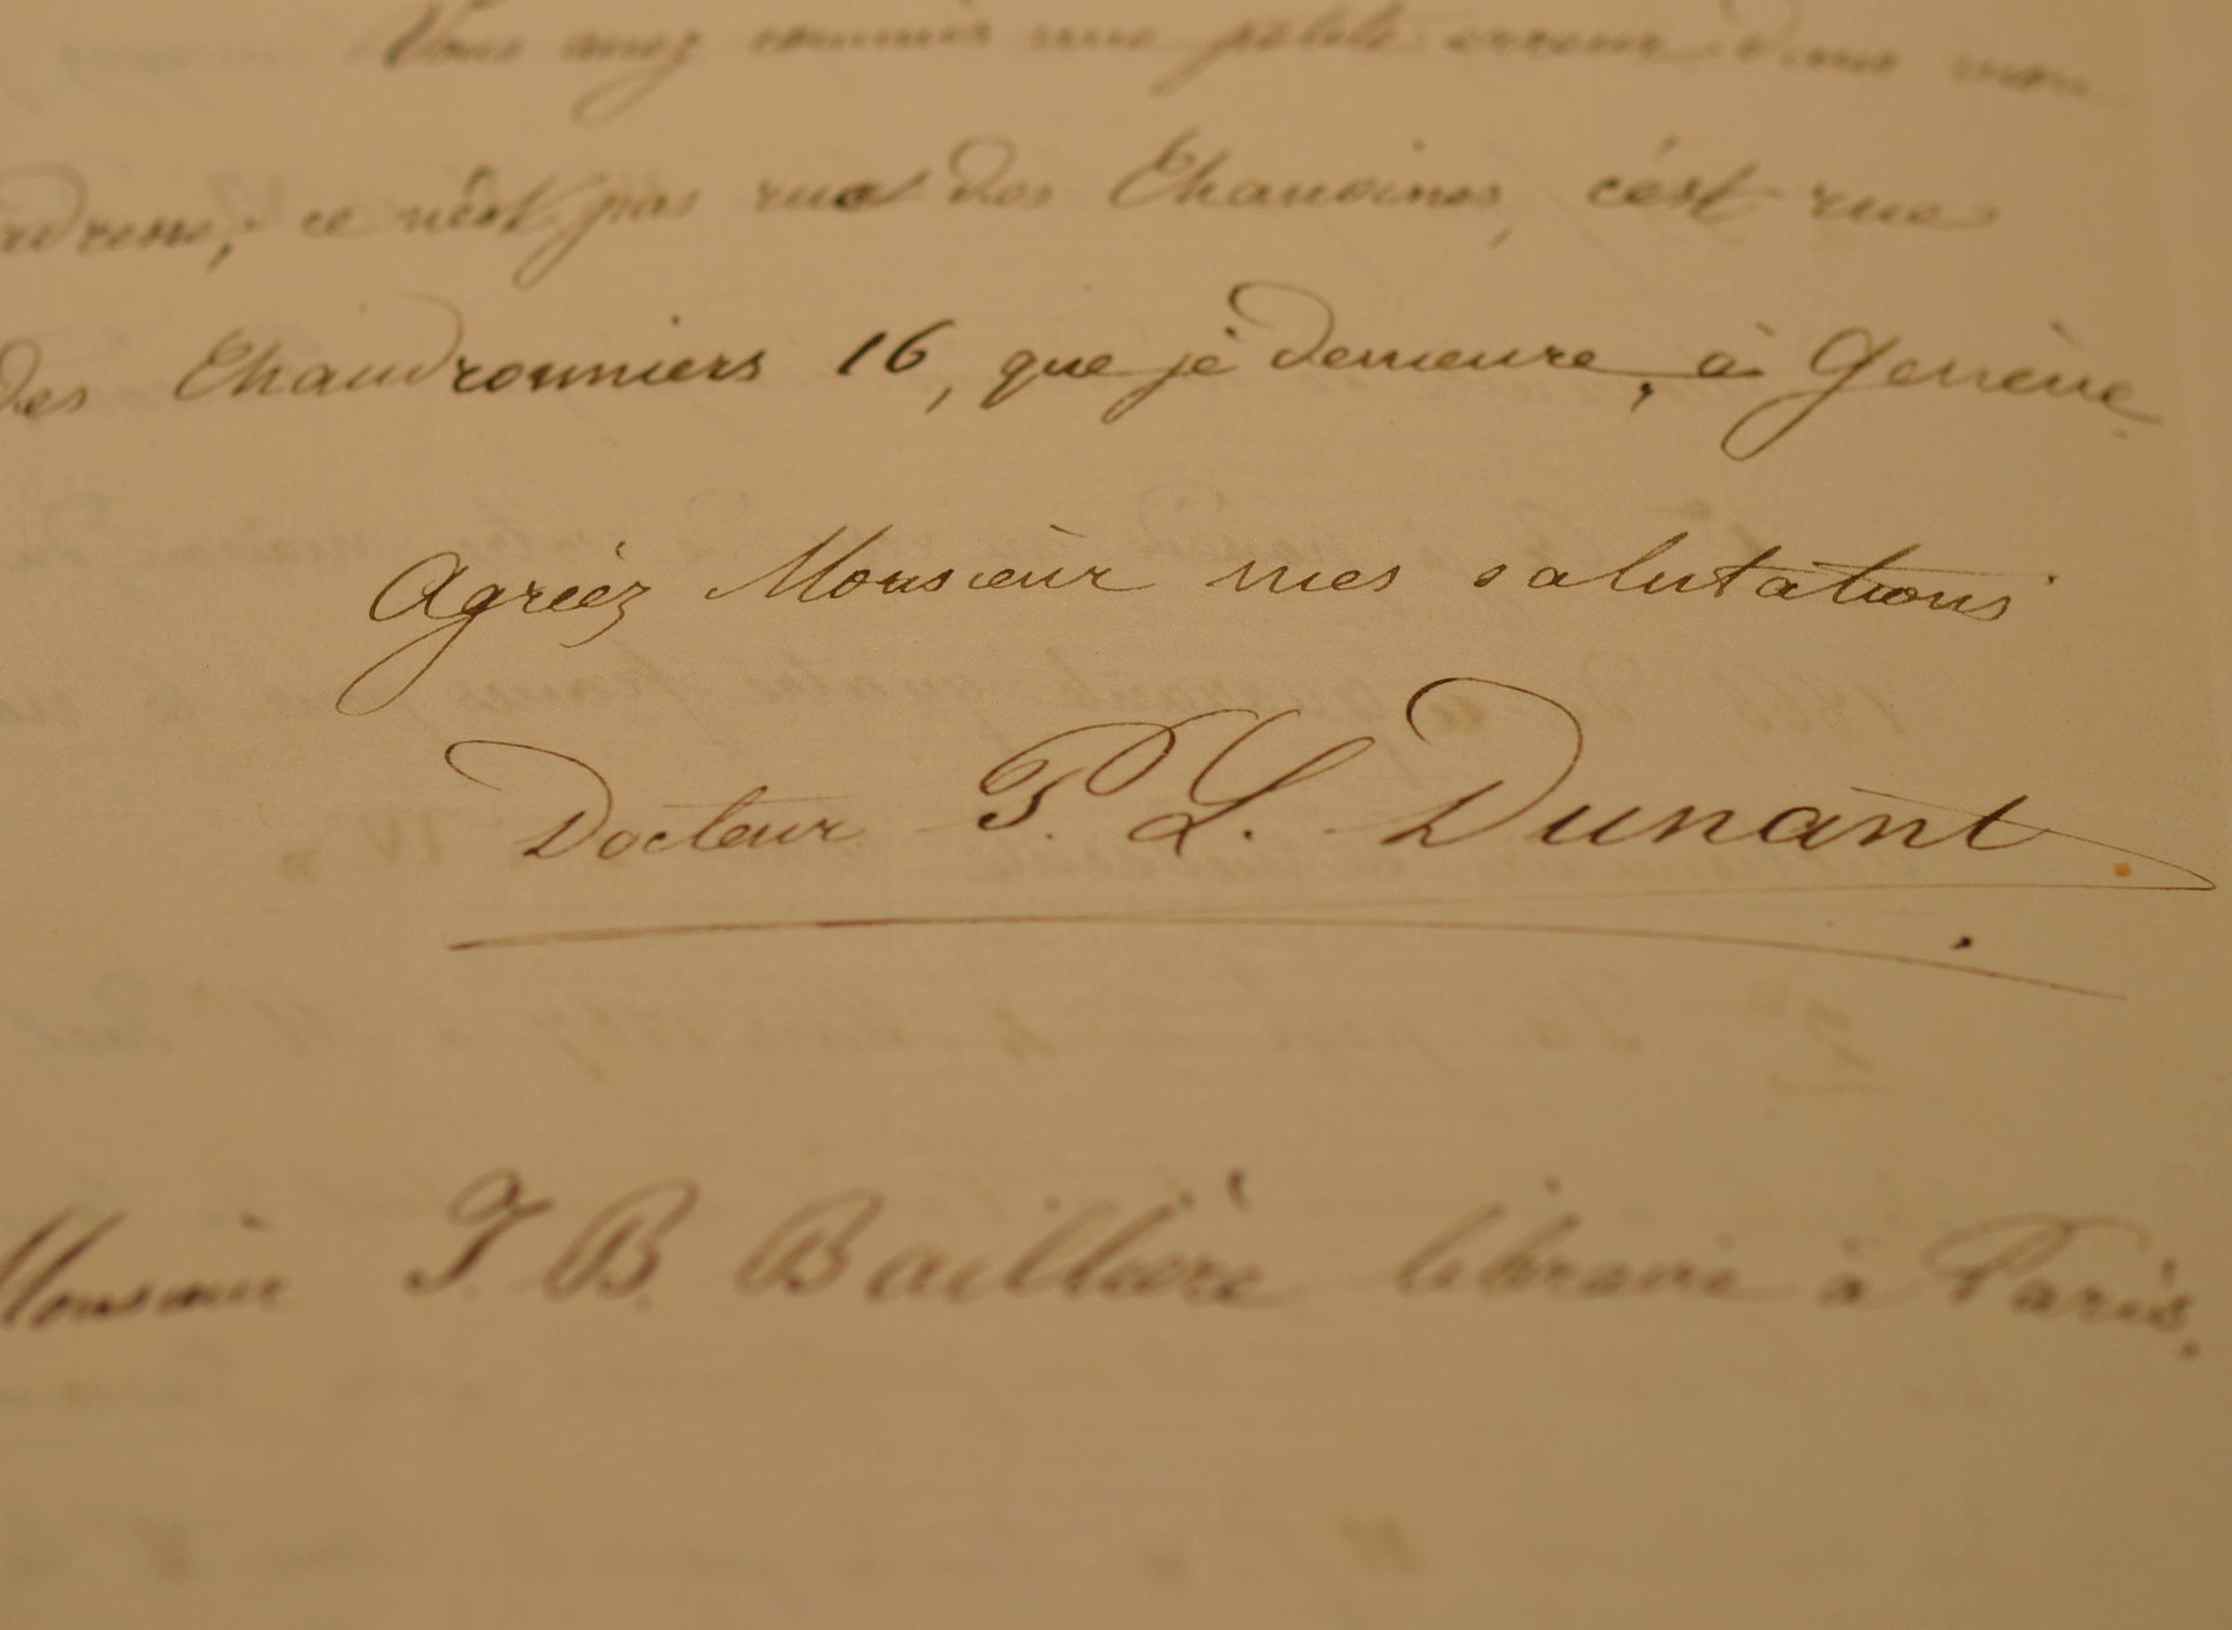 Vous avez commis une petite erreur dans mon
adresse; ce n'est pas rue des Chanoines, c'est rue
des Chaudronniers 16, que je demeure, à Genève.
Agréez Monsieur mes salutations
Docteur P. L. Dunant.
Monsieur J. B. Baillière libraire à Paris.